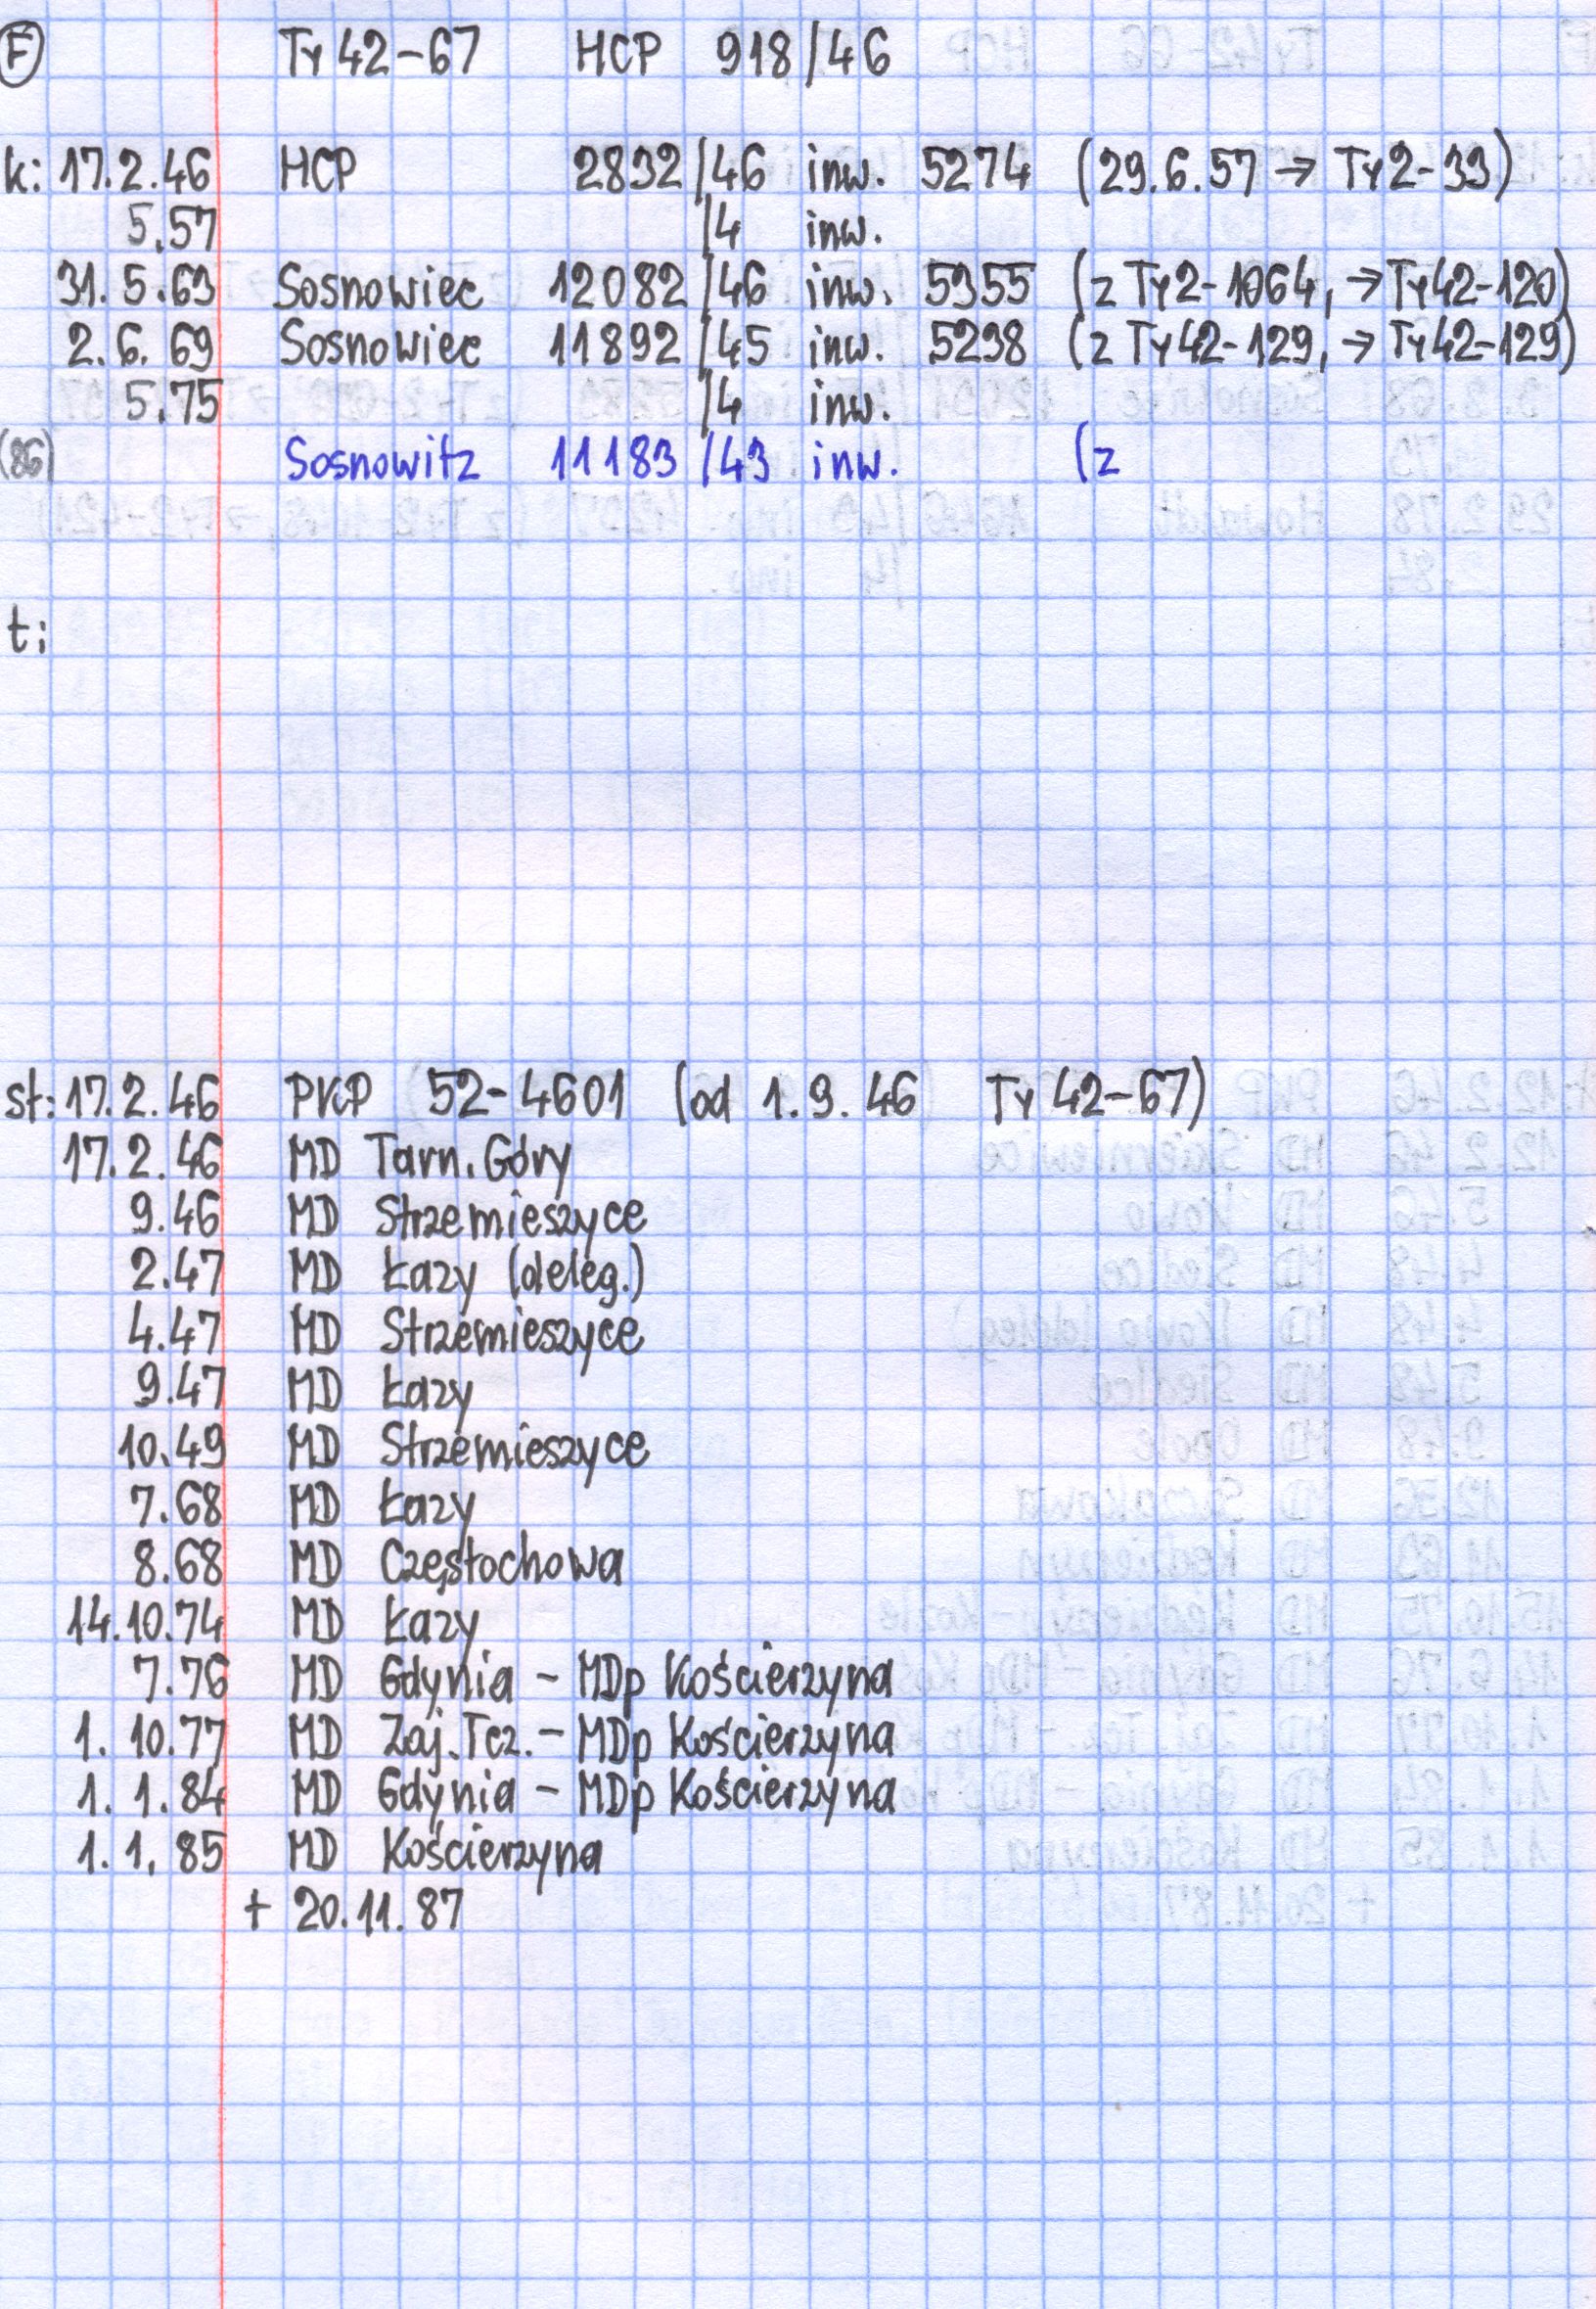 F Ty42-67 HCP 918/46
k: 17.2.46 HCP 2832/46 inw. 5274 (29.6.57 → Ty2-33)
5.57 /4 inw.
31.5.63 Sosnowiec 12082/46 inw. 5355 (z Ty2-1064, → Ty42-120)
2.6.69 Sosnowiec 11892/45 inw. 5298 (z Ty42-129, → Ty42-129)
5.75 /4 inw.
(86) Sosnowitz 11183/43 inw. (z
t:
st: 17.2.46 PKP 52-4601 (od 1.9.46 Ty42-67)
17.2.46 MD Tarn. Góry
9.46 MD Strzemieszyce
2.47 MD Łazy (deleg.)
4.47 MD Strzemieszyce
9.47 MD Łazy
10.49 MD Strzemieszyce
7.68 MD Łazy
8.68 MD Częstochowa
14.10.74 MD Łazy
7.76 MD Gdynia - MDp Kościerzyna
1.10.77 MD Zaj. Tcz. - MDp Kościerzyna
1.1.84 MD Gdynia - MDp Kościerzyna
1.1.85 MD Kościerzyna
+ 20.11.87